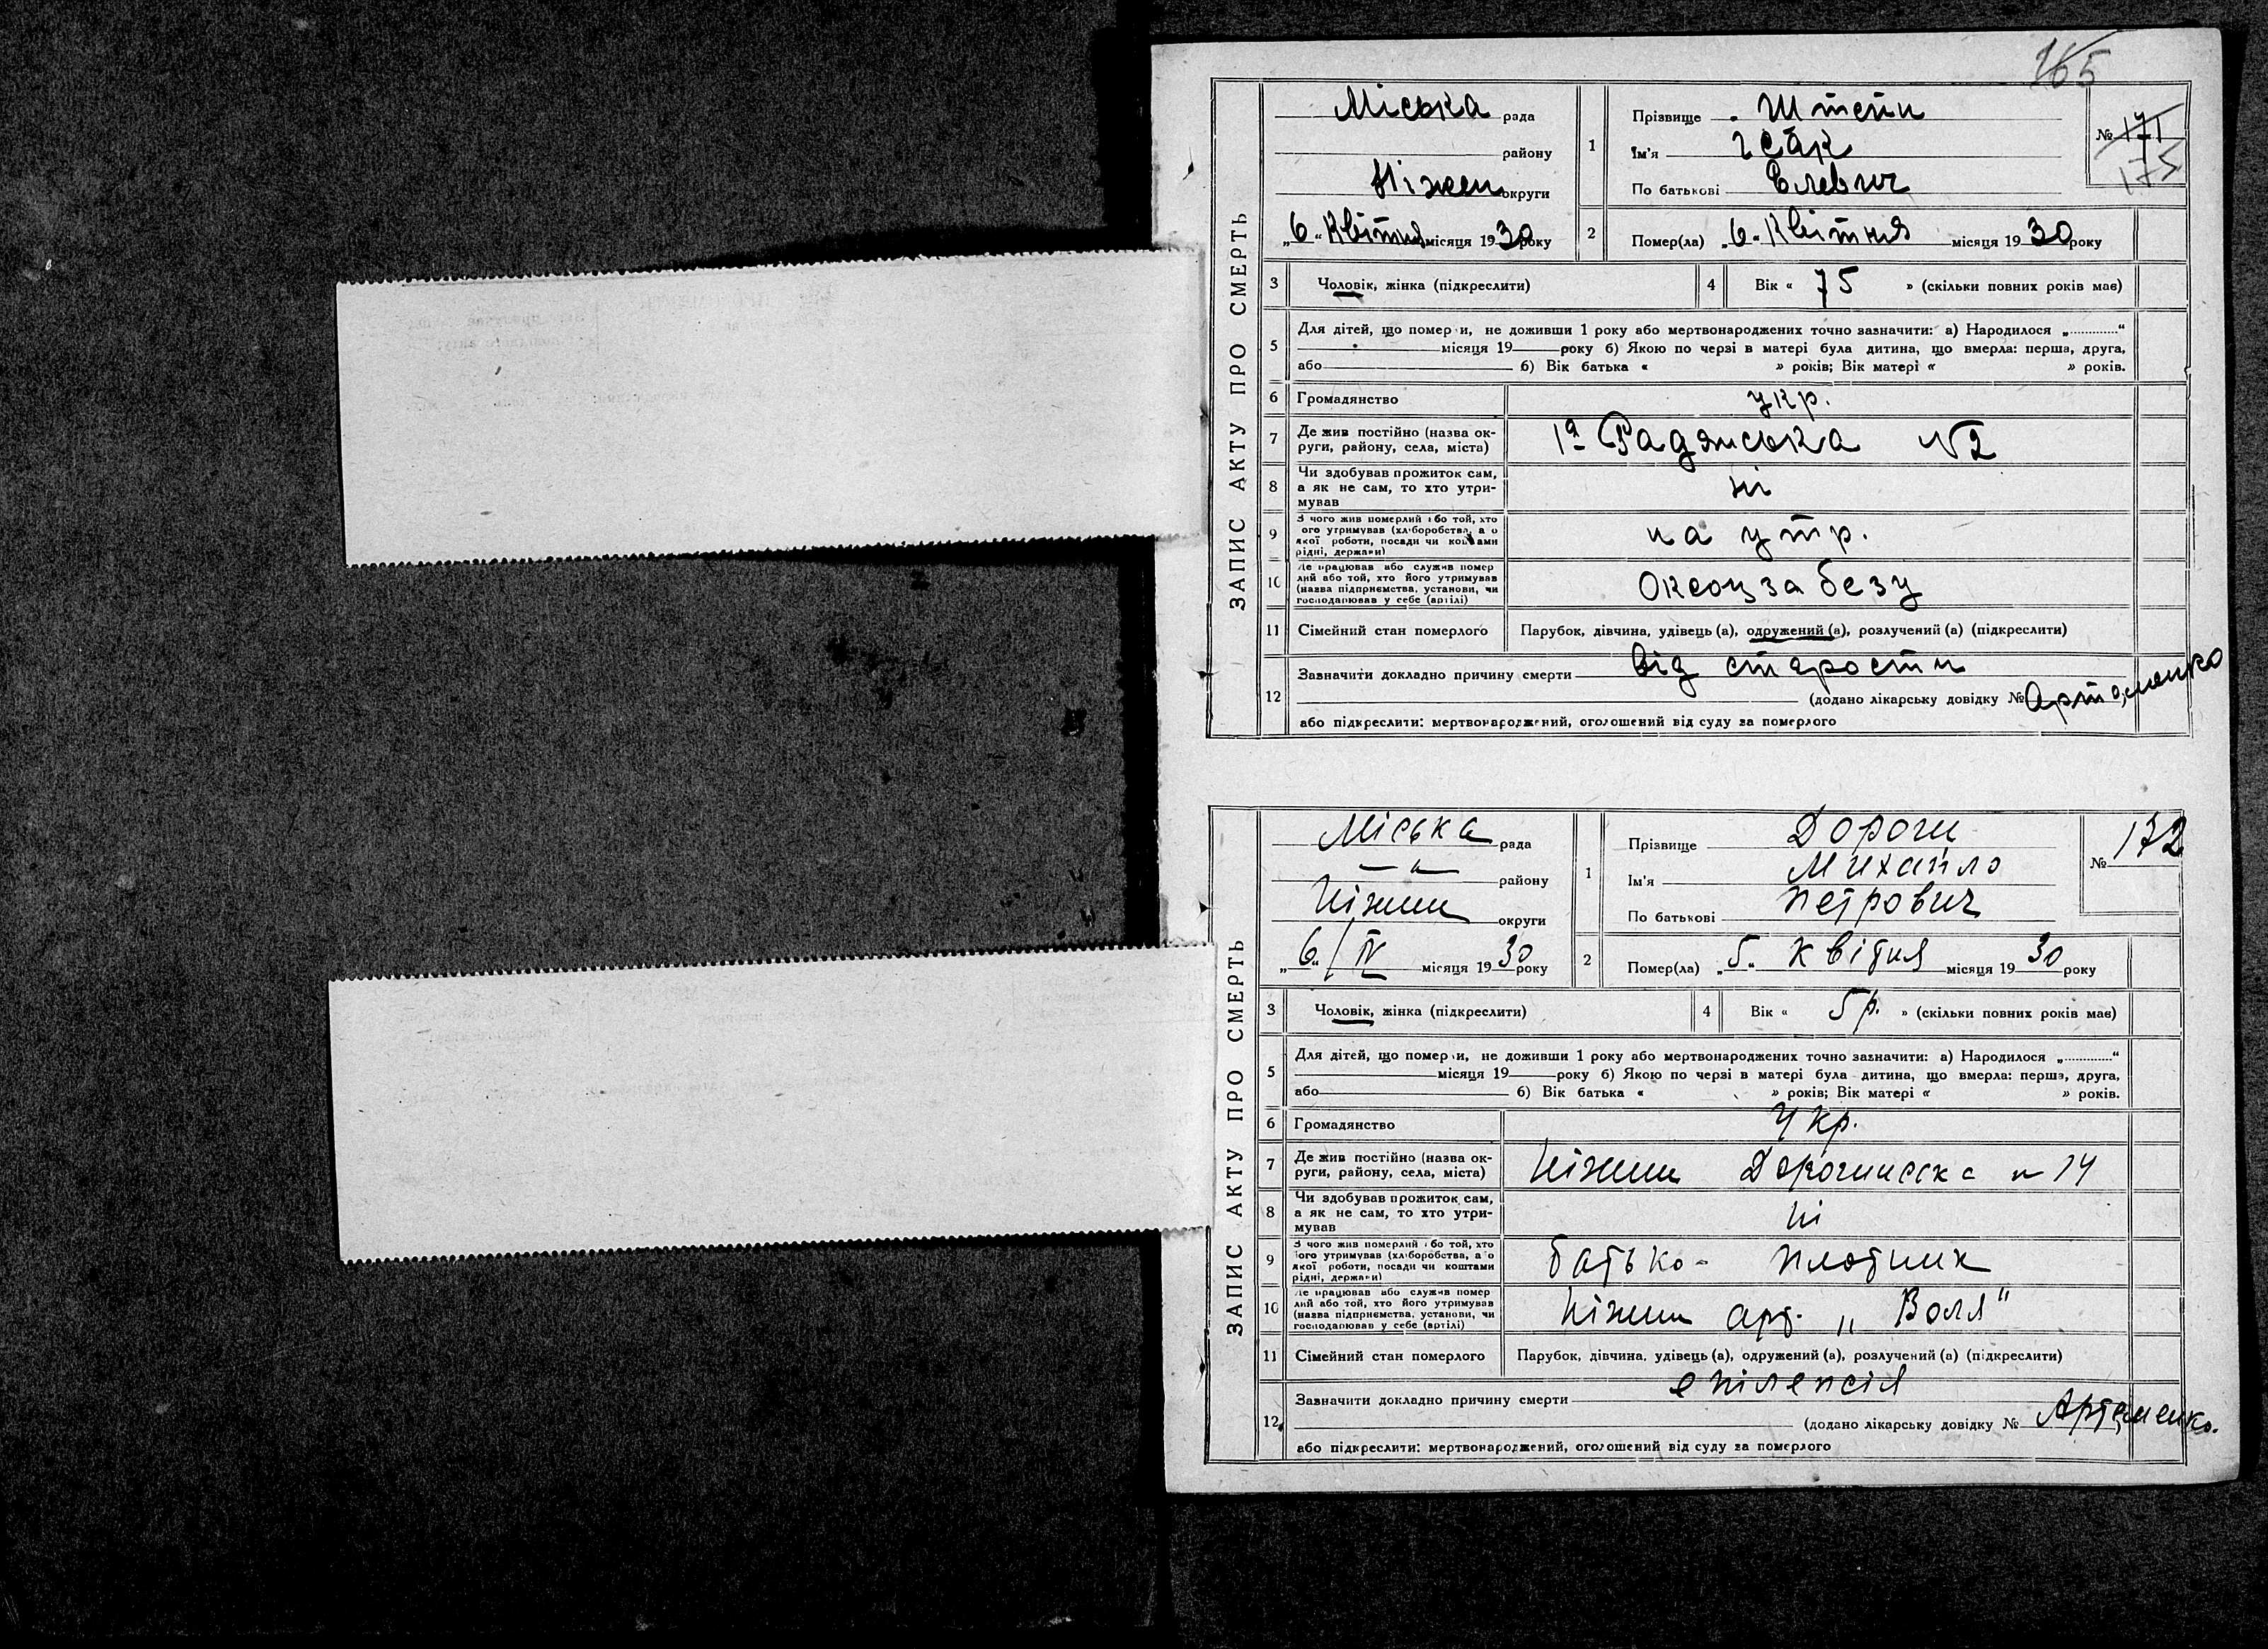 165
ЗАПИС АКТУ ПРО СМЕРТЬ
Міська рада
району
Ніжен округи
„6“ Квітня місяця 1930 року
1
Прізвище Штейн
Ім'я Ісак
По батькові Елевич
№ 171
175
2 Помер(ла) „6“ Квітня місяця 1930 року
3 Чоловік, жінка (підкреслити)
4 Вік « 75 » (скільки повних років має)
5 Для дітей, що помер и, не доживши 1 року або мертвонароджених точно зазначити: а) Народилося „............“
місяця 19 року б) Якою по черзі в матері була дитина, що вмерла: перша, друга,
або б) Вік батька « » років; Вік матері « » років.
6 Громадянство укр.
7 Де жив постійно (назва округи, району, села, міста) 1а Радянська №2
8 Чи здобував прожиток сам,
а як не сам, то хто утри-
мував ні
9 З чого жив померлий або той, хто
ого утримував (хліборобства, а о
якої роботи, посади чи коштами
рідні, держави) на утр.
10 Де працював або служив помер
лий або той, хто його утримував
(назва підприємства, установи, чи
господарював у себе (артілі) Оксоцзабезу
11 Сімейний стан померлого Парубок, дівчина, удівець (а), одружений (а), розлучений (а) (підкреслити)
12 Зазначити докладно причину смерти від старости
(додано лікарську довідку № ) Артеменко
або підкреслити: мертвонароджений, оголошений від суду за померлого
ЗАПИС АКТУ ПРО СМЕРТЬ
Міська рада
— " — району
Ніжин округи
„6“/IV місяця 1930 року
1
Прізвище Дорош
Ім'я Михайло
По батькові Петрович
№ 172
2 Помер(ла) „5“ Квітня місяця 1930 року
3 Чоловік, жінка (підкреслити)
4 Вік « 5 р. » (скільки повних років має)
5 Для дітей, що помер и, не доживши 1 року або мертвонароджених точно зазначити: а) Народилося „............“
місяця 19 року б) Якою по черзі в матері була дитина, що вмерла: перша, друга,
або б) Вік батька « » років; Вік матері « » років.
6 Громадянство Укр.
7 Де жив постійно (назва ок-
руги, району, села, міста) Ніжин № 14
8 Чи здобував прожиток сам,
а як не сам, то хто утри-
мував ні
9 З чого жив померлий або той, хто
ого утримував (хліборобства, а о
якої роботи, посади чи коштами
рідні, держави) батько - плотник
10 Де працював або служив помер
лий або той, хто його утримував
(назва підприємства, установи, чи
господарював у себе (артілі) Ніжин арт. „Воля"
11 Сімейний стан померлого Парубок, дівчина, удівець (а), одружений (а), розлучений (а) (підкреслити)
12 Зазначити докладно причину смерти епілепсія
(додано лікарську довідку № ) Артеменко.
або підкреслити: мертвонароджений, оголошений від суду за померлого